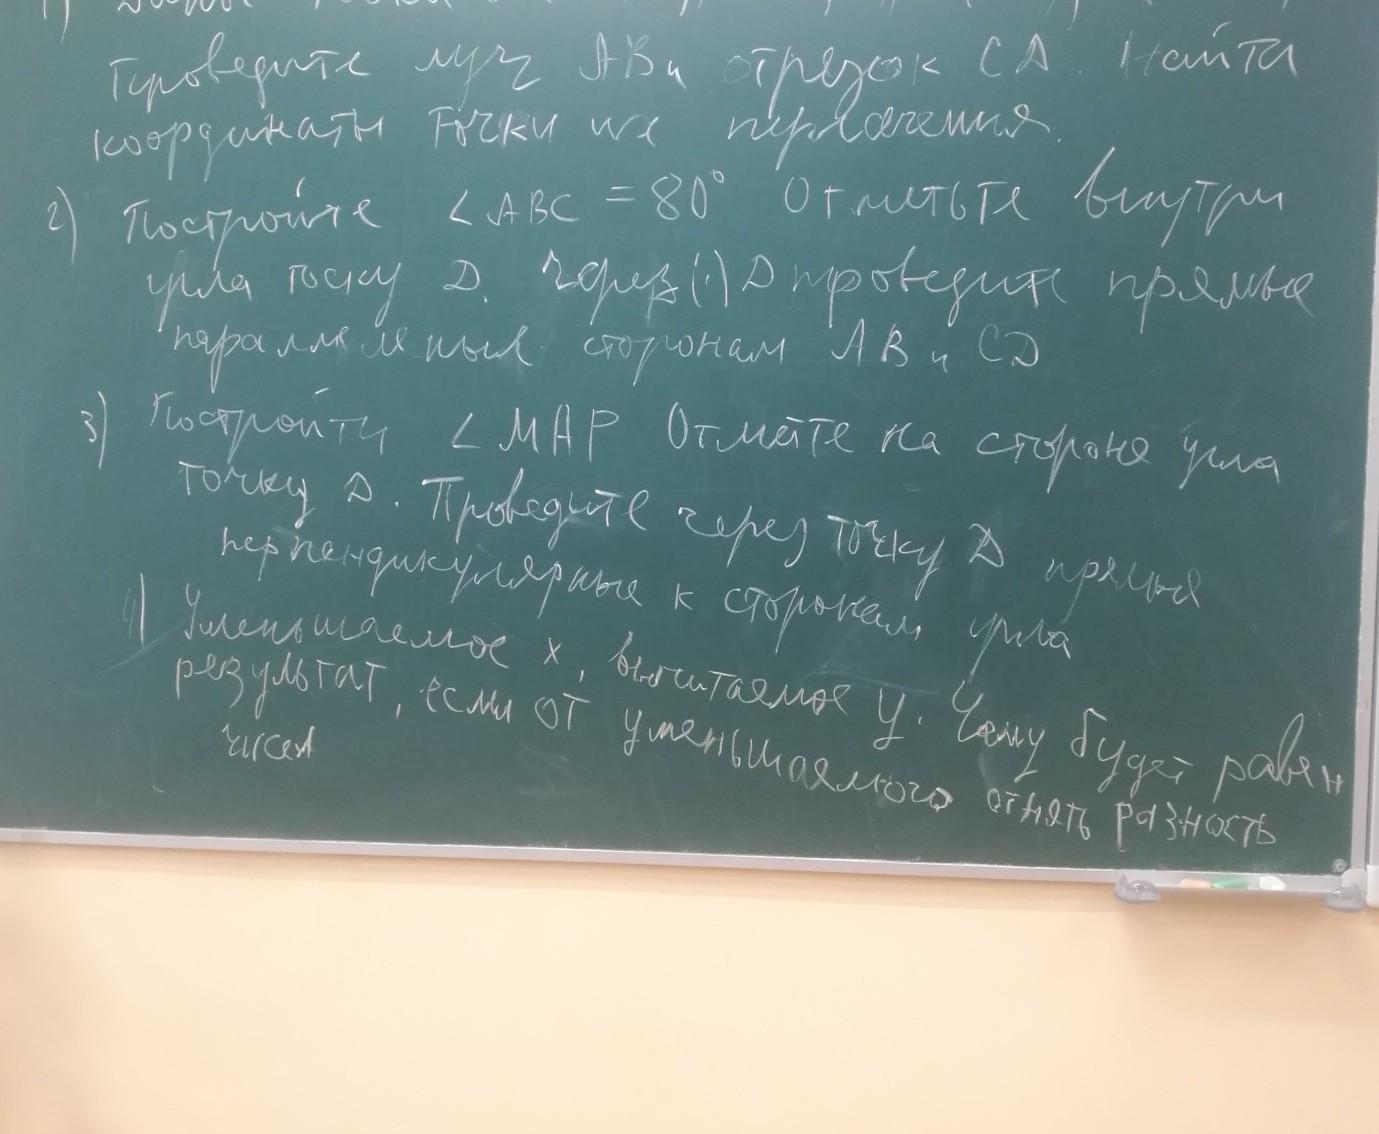 1) Даны точки
Проведите луч AB и отрезок CA. Найти
координаты точки их пересечения.
2) Постройте ∠ABC = 80° Отметьте внутри
угла точку D. Через (·) D проведите прямые
параллельные сторонам AB и CD
3) Постройти ∠MAP Отмейте на стороне угла
точку D. Проведите через точку D прямые
перпендикулярные к сторонам угла
4) Уменьшаемое x, вычитаемое y. Чему будет равен
результат, если от уменьшаемого отнять разность
чисел